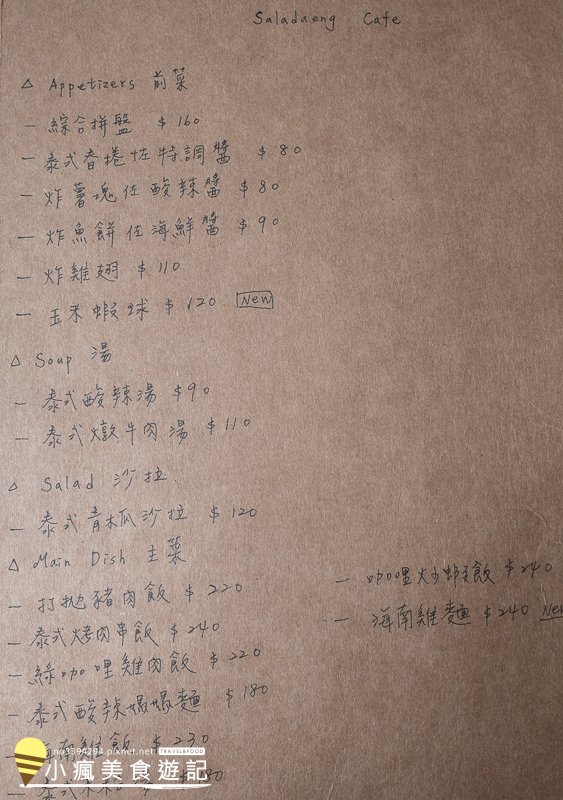 Saladaeng Cafe
△ Appetizers 前菜
— 綜合拼盤 $160
— 泰式春捲佐特調醬 $80
— 炸薯塊佐酸辣醬 $80
— 炸魚餅佐海鮮醬 $90
— 炸雞翅 $110
— 玉米蝦球 $120 New
△ Soup 湯
— 泰式酸辣湯 $90
— 泰式燉牛肉湯 $110
△ Salad 沙拉
— 泰式青木瓜沙拉 $120
△ Main Dish 主菜
— 打拋豬肉飯 $220
— 泰式烤肉串飯 $240
— 綠咖哩雞肉飯 $220
— 泰式酸辣媽媽麵 $180
南雞飯 $230
— 泰式
— 咖哩炒蝦飯 $240
— 海南雞麵 $240 New
no3394294.pixnet.net TRAVEL&FOOD
小瘋美食遊記